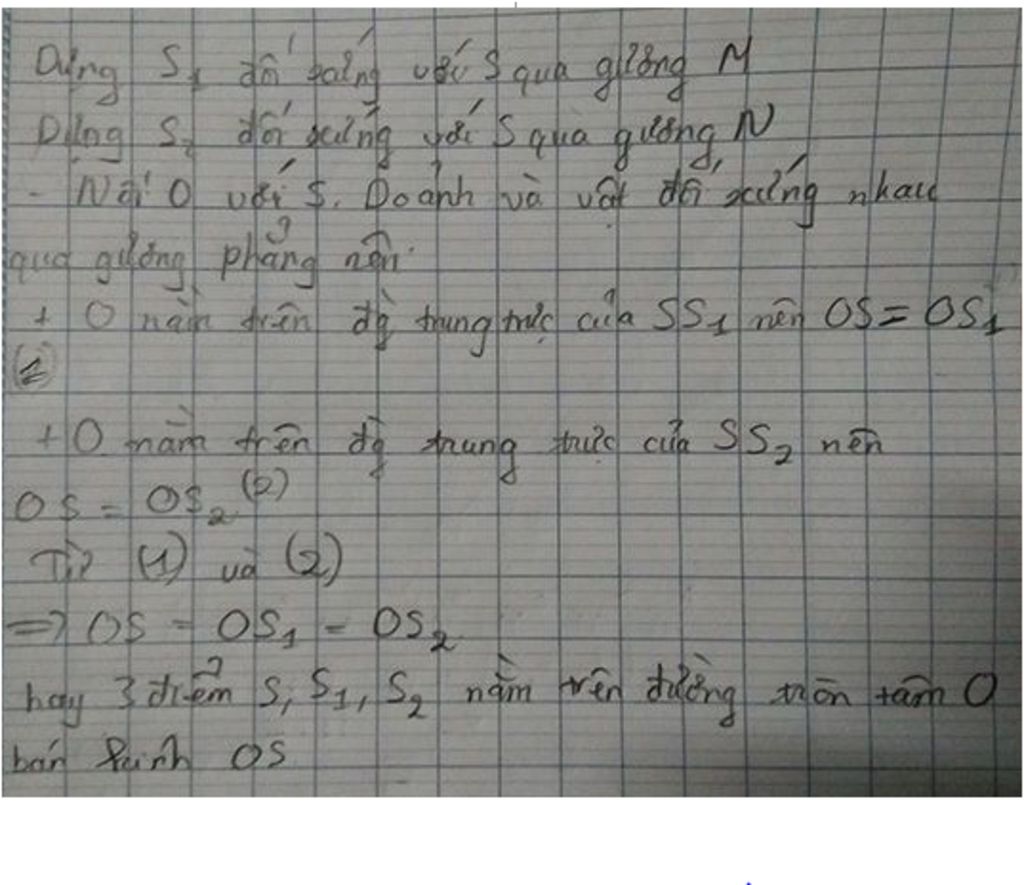 Dựng S₁ đối xứng với S qua gương M
Dựng S₂ đối xứng với S qua gương N
- Nối O với S. Do ảnh và vật đối xứng nhau
qua gương phẳng nên:
+ O nằm trên đg trung trực của SS₁ nên OS = OS₁
(1)
+ O nằm trên đg trung trực của SS₂ nên
OS = OS₂ (2)
Từ (1) và (2)
=> OS = OS₁ = OS₂
hay 3 điểm S, S₁, S₂ nằm trên đường tròn tâm O
bán kính OS